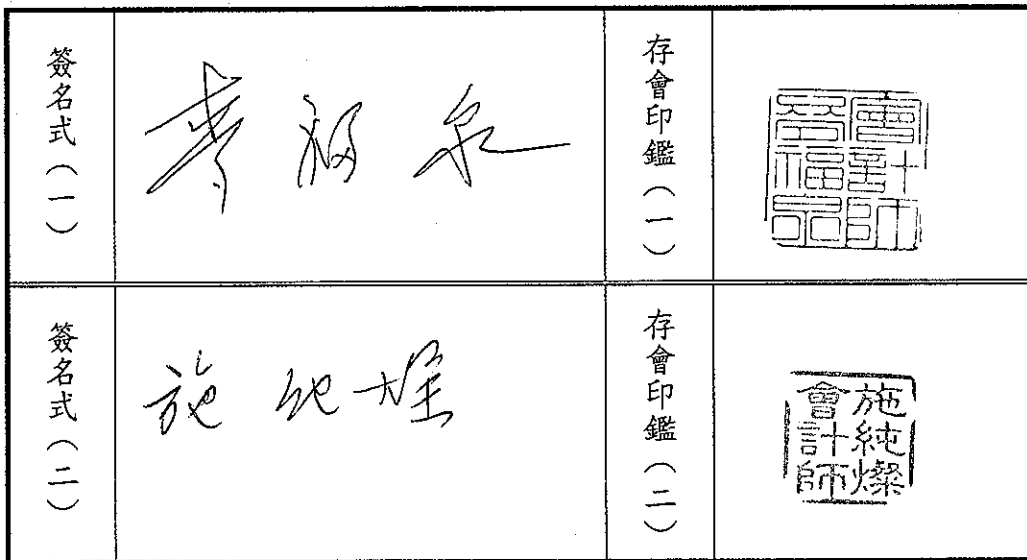 簽名式（一）
存會印鑑（一）
會計師
簽名式（二）
施純燦
存會印鑑（二）
施純燦
會計師